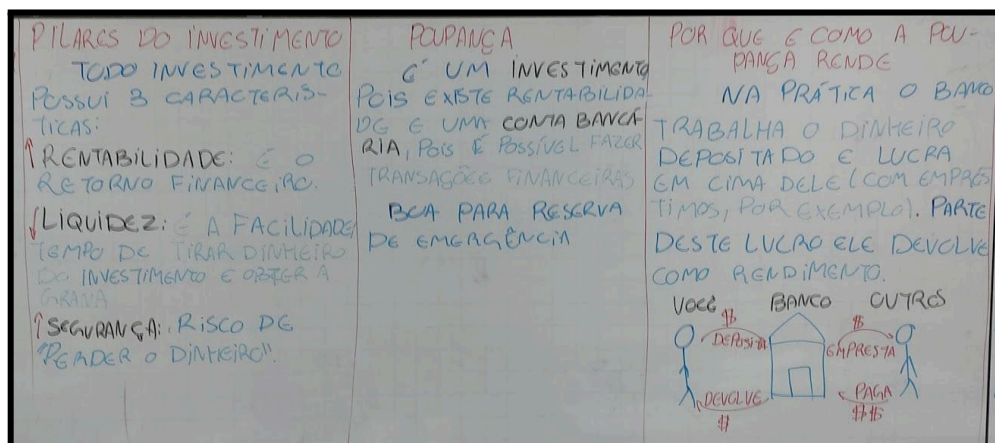 PILARES DO INVESTIMENTO
TODO INVESTIMENTO
POSSUI 3 CARACTERÍS-
TICAS:
↑RENTABILIDADE: É O
RETORNO FINANCEIRO.
↓LIQUIDEZ: É A FACILIDADE/
TEMPO DE TIRAR DINHEIRO
DO INVESTIMENTO E OBTER A
GRANA
↑SEGURANÇA: RISCO DE
"PERDER O DINHEIRO".
POUPANÇA
É UM INVESTIMENTO
POIS EXISTE RENTABILIDA-
DE E UMA CONTA BANCÁ-
RIA, POIS É POSSÍVEL FAZER
TRANSAÇÕES FINANCEIRAS
BOA PARA RESERVA
DE EMERGÊNCIA
POR QUE E COMO A POU-
PANÇA RENDE
NA PRÁTICA O BANCO
TRABALHA O DINHEIRO
DEPOSITADO E LUCRA
EM CIMA DELE (COM EMPRÉS
TIMOS, POR EXEMPLO). PARTE
DESTE LUCRO ELE DEVOLVE
COMO RENDIMENTO.
VOCÊ BANCO OUTROS
$ $
DEPOSITA EMPRESTA
DEVOLVE PAGA
$ $$